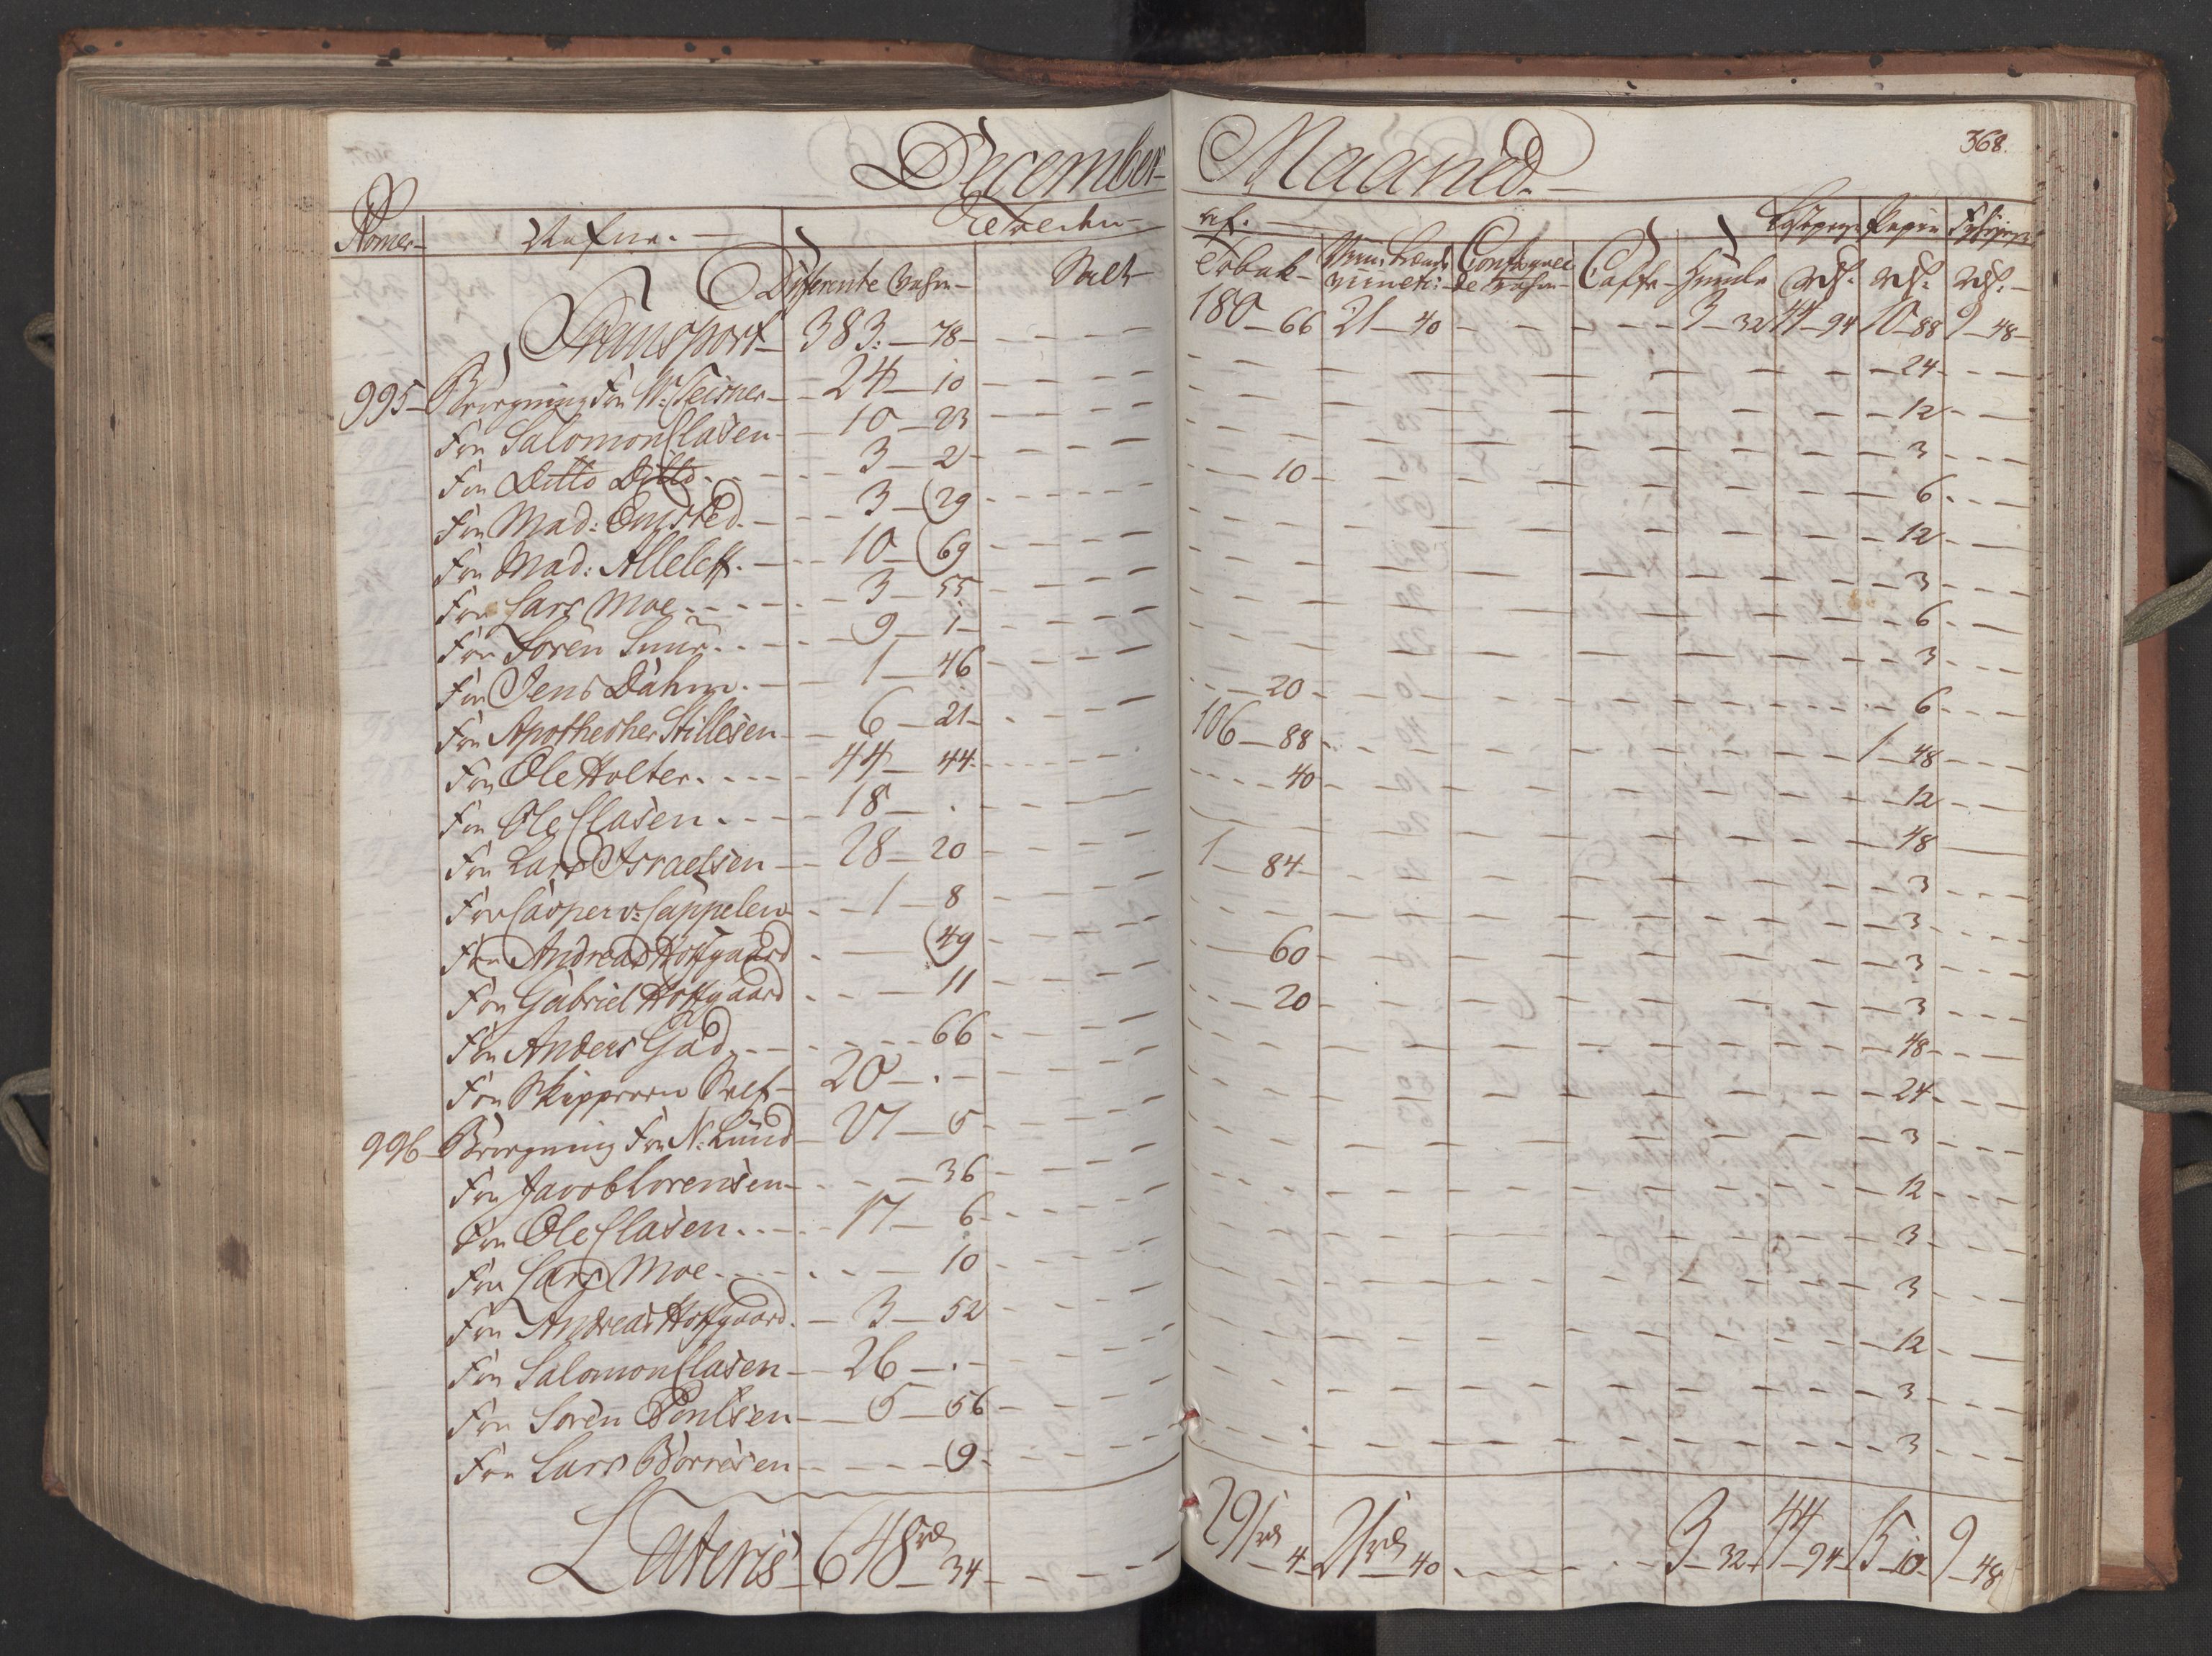 December Maaned.
368.
Nomer Nafne. Told
Differente Vahre Salt Tobak Caffe Humle Papir
Rdl. Rdl. Rdl.
Transport 383. 78 180 66 21 40 3 32 94 10 88 9 48
995 Beregning For W: Teisner 24 10 24
For Salomon Clasen 10 23 12
For Ditto Ditto 3 2 3
For Mad: 3 29 10 6
For Mad: 10 69 12
For Lars Moe 3 55 3
For Soren 9 1 6
For Jens Dahm 1 46 3
For Apotheker Stillesen 6 21 20 6
For Ole Holter 44 44 106 88 1 48
For Ole Clasen 18 . 40 12
For Lars Israelsen 28 20 48
For Casper v: Cappelen 1 8 1 84 3
For Andreas Hoffgaard 49 3
For Gabriel Hoffgaard 11 60 3
For Anders Gad 66 20 3
For Skipperen Self 20 . 48
996 Beregning For N: Lund 27 5 24
For Jacob Lorensen 36 3
For Ole Clasen 17 6 12
For Lars Moe 10 3
For Andreas Hoffgaard 3 52 3
For Salomon Clasen 26 . 12
For Soren Poulsen 5 56 3
For Lars Börresen 9 3
Lateris 648 rd 34 291 rd 4 21 rd 40 3 32 44 94 15 10 9 48